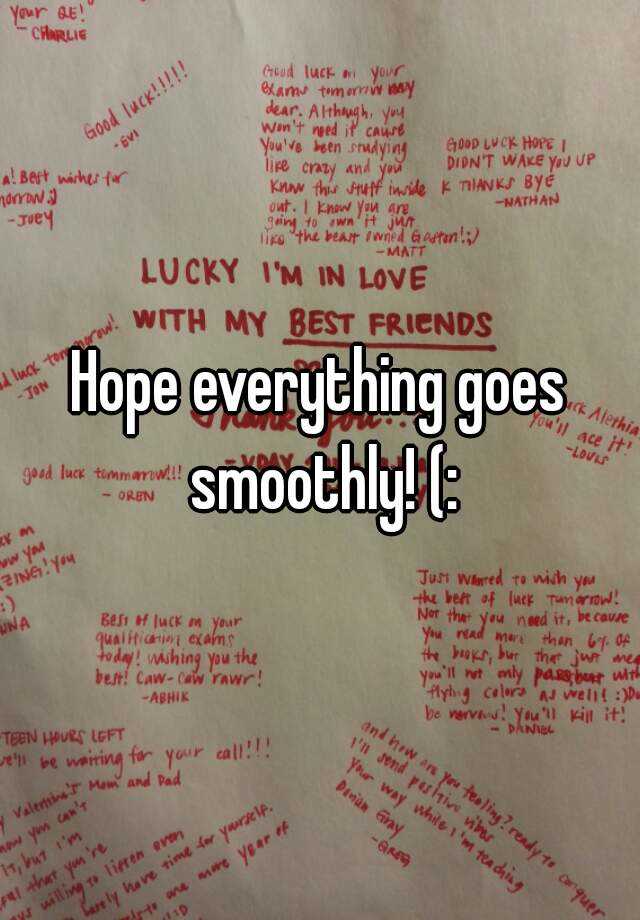 Your QE!
- CHARLIE
Good luck!!!!!
- EVI
Good luck on your
exams tomorrow my
dear. Although, you
won't need it cause
you've been studying
like crazy and you
know this stuff inside
out. I know you are
going to own it just
like the beast owned Gaston! ;)
- MATT
GOOD LUCK HOPE I
DIDN'T WAKE YOU UP
K THANKS BYE
- NATHAN
a! Best wishes for
morrow :)
- JOEY
LUCKY I'M IN LOVE
WITH MY BEST FRIENDS
luck tomorrow!
- JON
Hope everything goes
smoothly! (:
Thank you!
- VDAY
Alethia
You'll ace it!
- LOUIS
good luck tommarrow!!!
- OREN
on
you
ZING! YOU
:)
NNA
Best of luck on your
qualification exams
today! Wishing you the
best! Caw-Caw rawr!
- ABHIK
Just wanted to wish you
the best of luck tomorrow!
Not that you need it, because
you read more than 67. of
the books, but that just mea
you'll not only pass, but with
flying colors as well! :) Do
be nervous! You'll kill it!
- DANIEL
TEEN HOURS LEFT
we'll be waiting for your call!!!
Mom and Dad
Valentine's
now you can't
it, but I'm
that you're
willing to listen even
barely have time for yourself.
to one more year of
:D
and how are you feeling? ready to conquer
I'll send positive vibes
your way while I'm teaching
Dorian Gray
- GREG